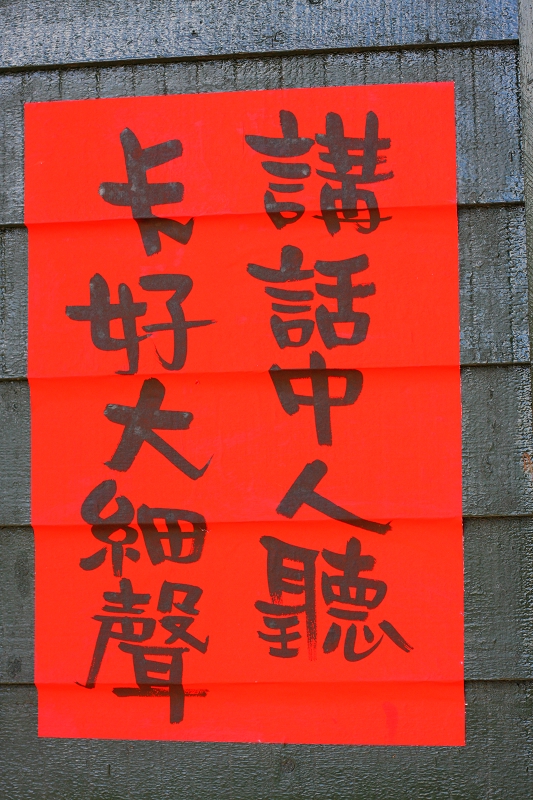 講話中人聽
卡好大細聲